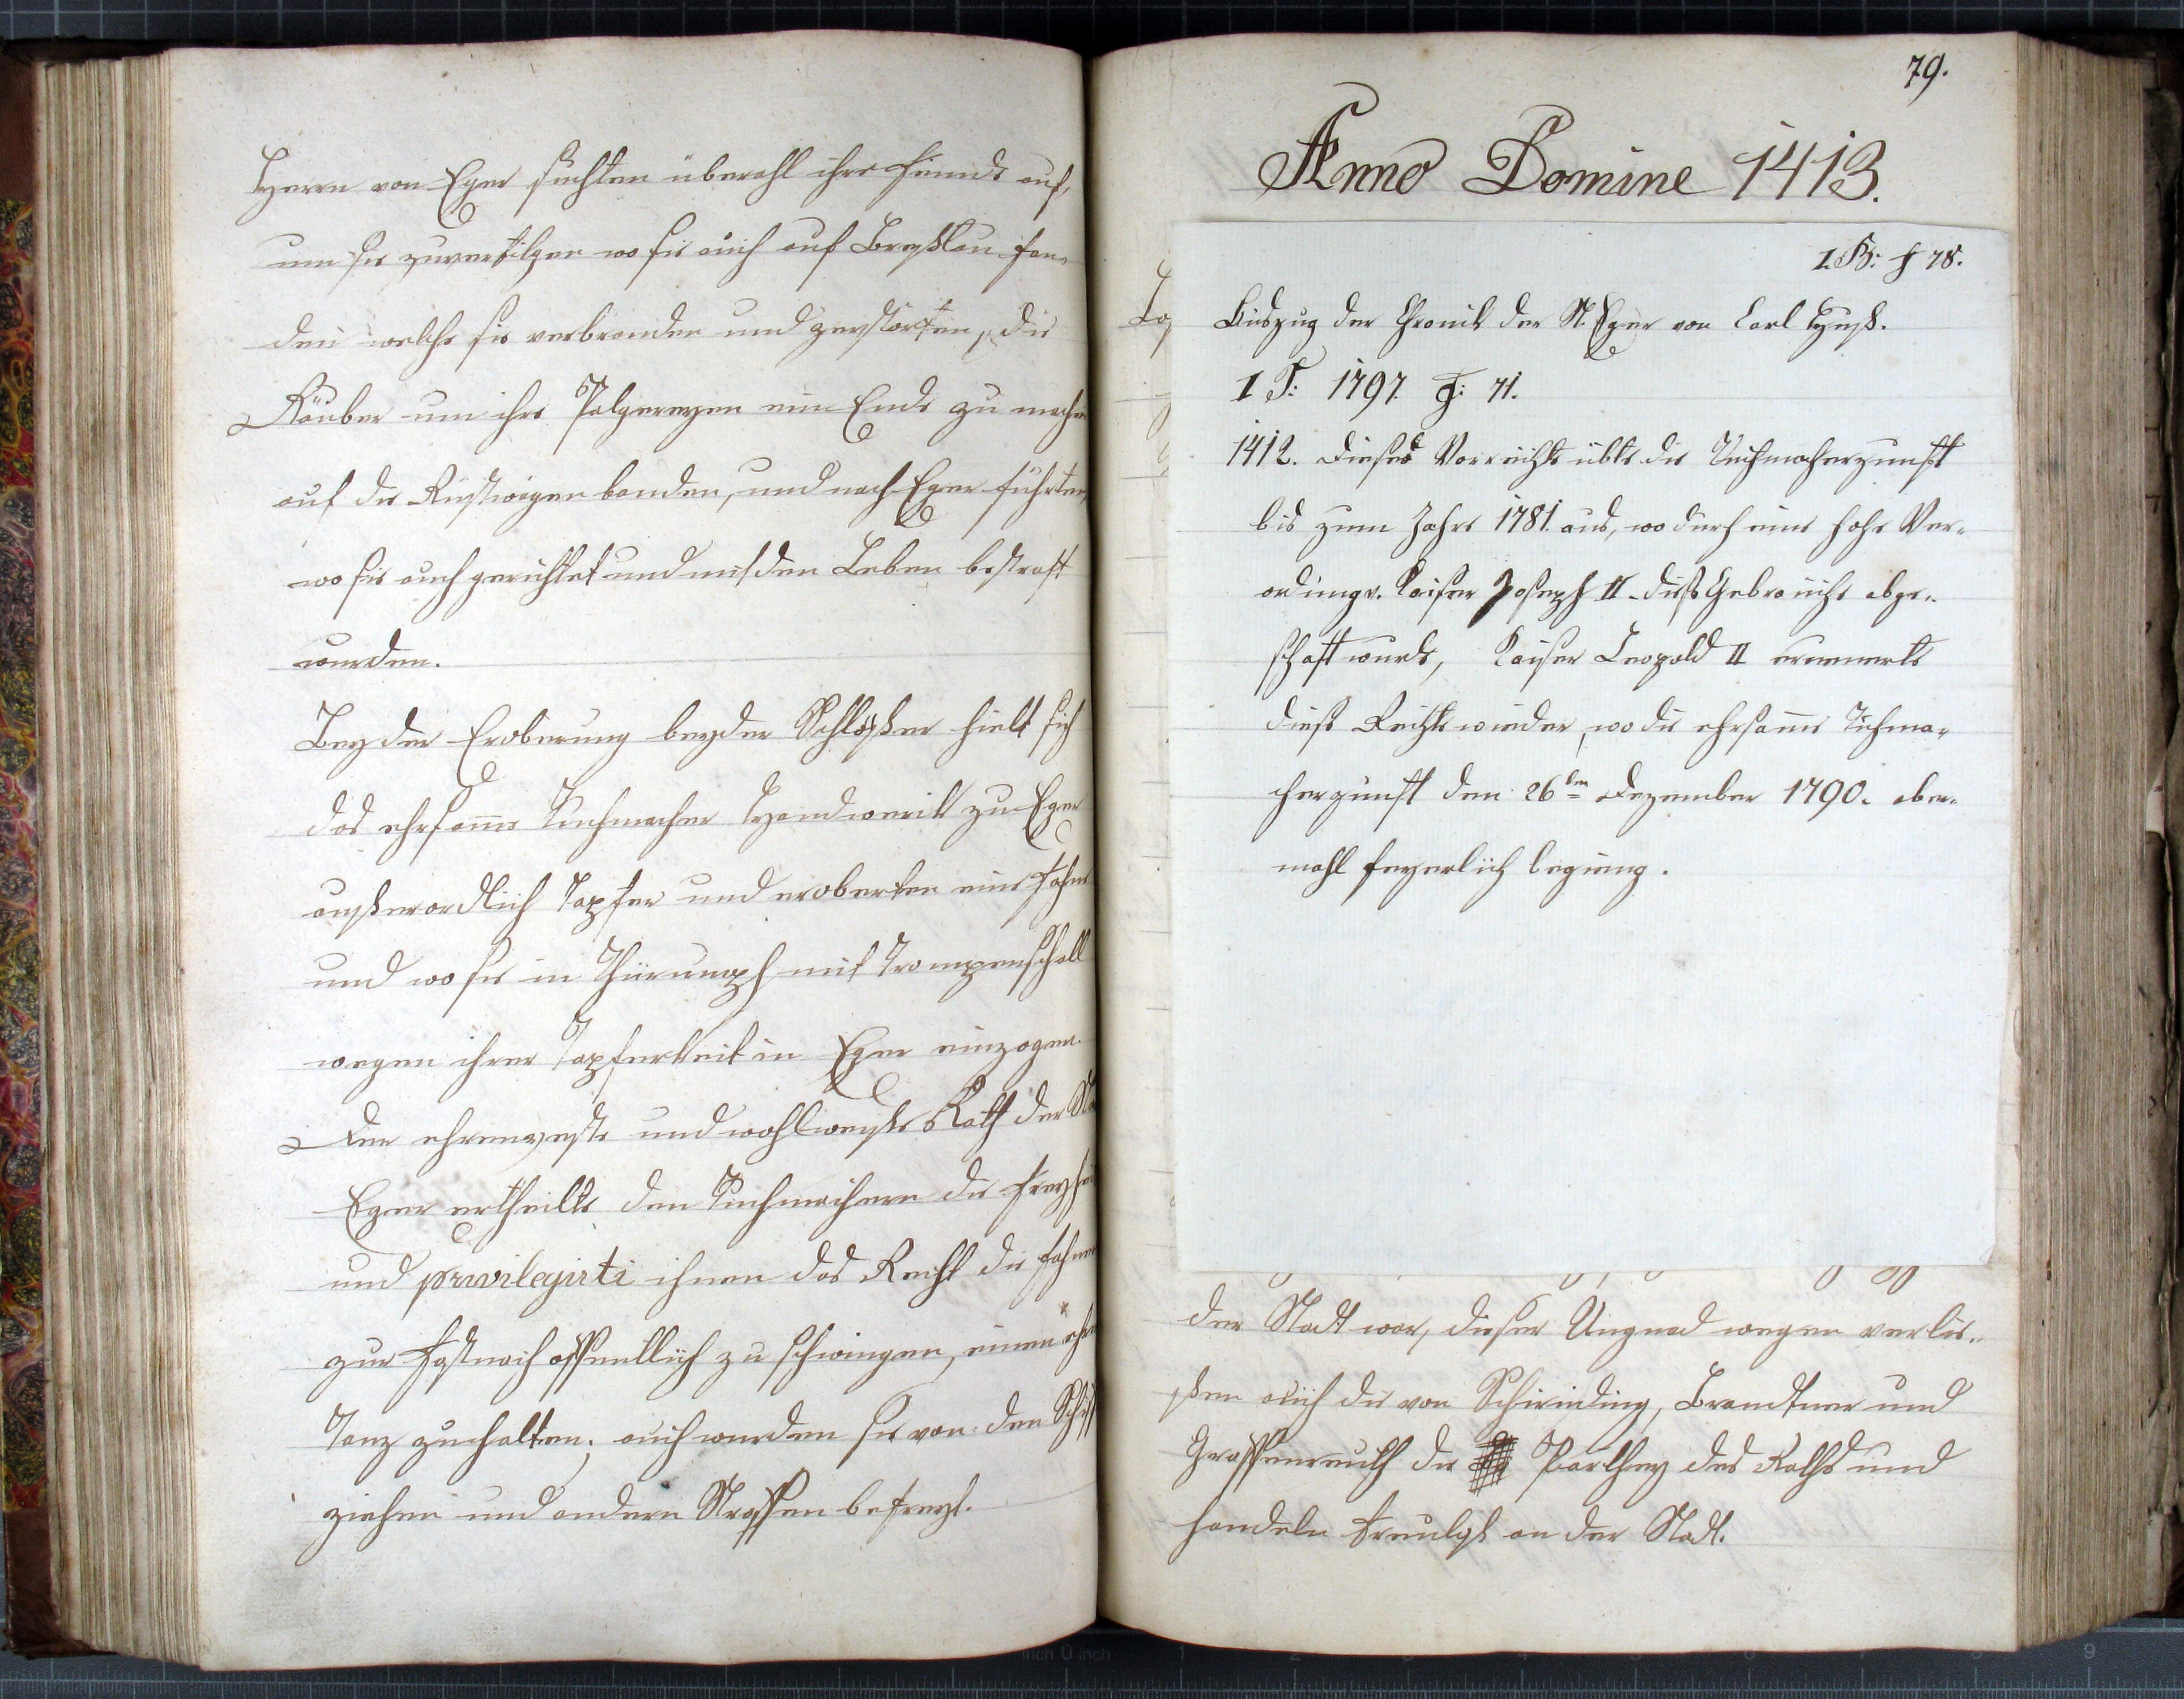 Herrn von Eger suchten überahl ihre Feinde auf,
um sie zuvertilgen wo sie auch auf Graßlau fan¬
den welche sie verbranden und zerstörten, die
Räuber um ihre Palgereyen ein Ende zu machen
auf die Rüstwägen banden, und nach Eger führten,
wo sie auch gerichtet und mit den Leben bestraft
wurden.
Bey der Eroberung beyder Schlößer hielt sich
das ehrsame Tuchmacher Handwerck zu Eger
außerordlich Tapfer und eroberten eine Fahne
und wo sie in Thriumph mit Trompenschall
wegen ihrer Tapferkeit in Eger einzogen.
Der ehrenveste und wohlweyse Rath der
Eger ertheilte den Tuchmachern die Freyheit
und privilegirti ihnen das Recht die Fahne
zur Fastnach öffentlich zu schwingen, einen *
Tanz zuhalten; auch wurden sie von den
ziehen und andern Straffen befreyt.
79.
Anno Domine 1413.
I. B: f 78.
Auszug der Chronik der St. Eger von Carl Huß.
I T: 1797. F: 71.
1412. Dieses Vorreicht übte die Tuchmacherzunft
bis zum Jahre 1781. aus, wo durch eine hohe Ver¬
ordung v. Kaiser Joseph II. dieß Gebräuche abge¬
schaft wurde, Kaiser Leopold II erneuerte
dieß Recht wieder, wo die ehrsame Tuchma¬
cherzunft den 26ten Dezember 1790. aber¬
mahl feyerlich beging.
der Stadt war, dieser Ungnad wegen verlie¬
ßen auch die von Schirnding, Brandtner und
Graffenreuth die Parthey des Raths und
handeln treulost an der Stadt.